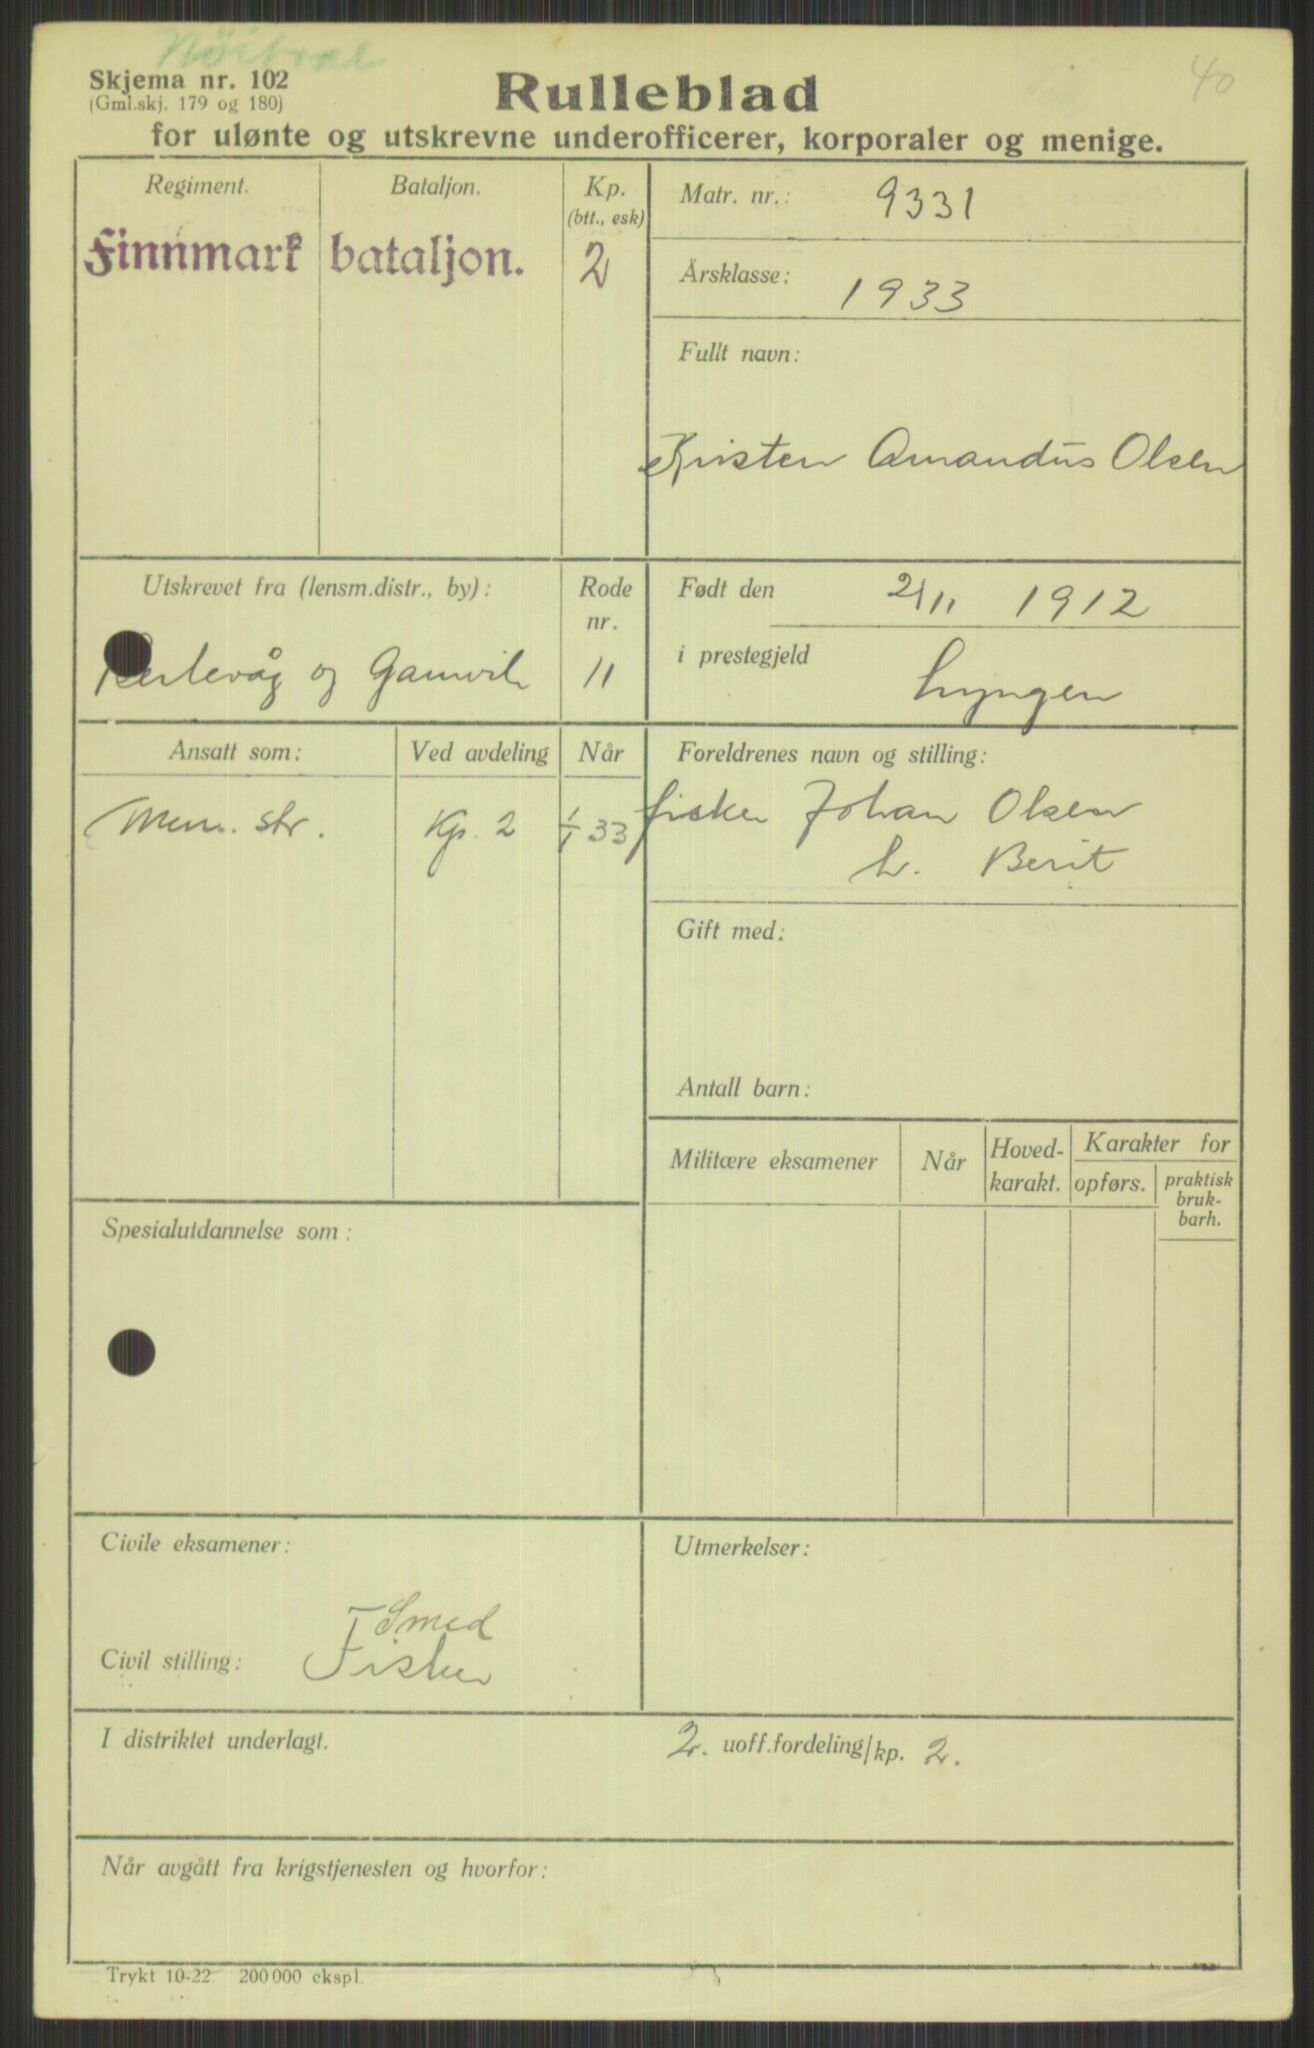 Skjema nr. 102
(Gml.skj. 179 og 180)
40
Rulleblad
for ulønte og utskrevne underofficerer, korporaler og menige.
Regiment.
Bataljon.
Kp.
(btt., esk)
Finnmark bataljon.
2
Matr. nr.: 9331
Årsklasse: 1933
Fullt navn:
Kristen Amandus Olsen
Utskrevet fra (lensm.distr., by):
Rode
nr.
Berlevåg og Gamvik
11
Født den 2/11 1912
i prestegjeld Lyngen
Ansatt som:
Ved avdeling
Når
Men. str.
Kp. 2
1/1 33
Foreldrenes navn og stilling:
fisker Johan Olsen
h. Berit
Gift med:
Antall barn:
Militære eksamener
Når
Hoved-
karakt.
Karakter for
opførs.
praktisk
bruk-
barh.
Spesialutdannelse som:
Civile eksamener:
Smed
Civil stilling: Fisker
Utmerkelser:
I distriktet underlagt.
2. uoff.fordeling/kp. 2.
Når avgått fra krigstjenesten og hvorfor:
Trykt 10-22. 200 000 ekspl.